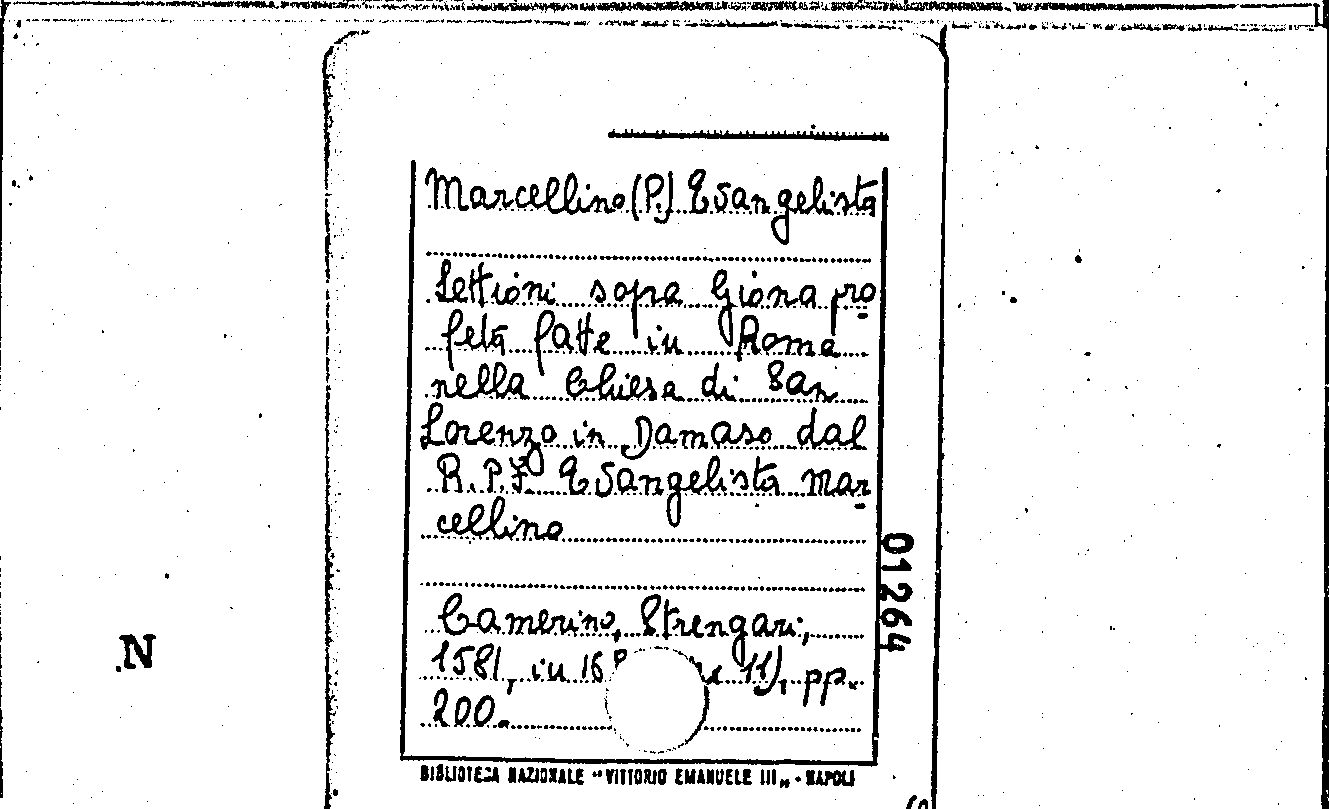 Marcellino (P.) Evangelista
Lettioni sopra Giona pro
feta fatte in Roma
nella Chiesa di San
Lorenzo in Damaso dal
R. P. F. Evangelista Mar
cellino
Camerino, Strengari,
1581, in 16° 11), pp.
200.
01264
N
BIBLIOTECA NAZIONALE "VITTORIO EMANUELE III„ - NAPOLI